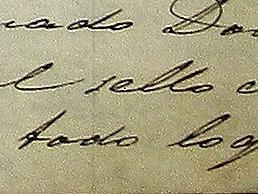 nado Do
el sello c
todo log